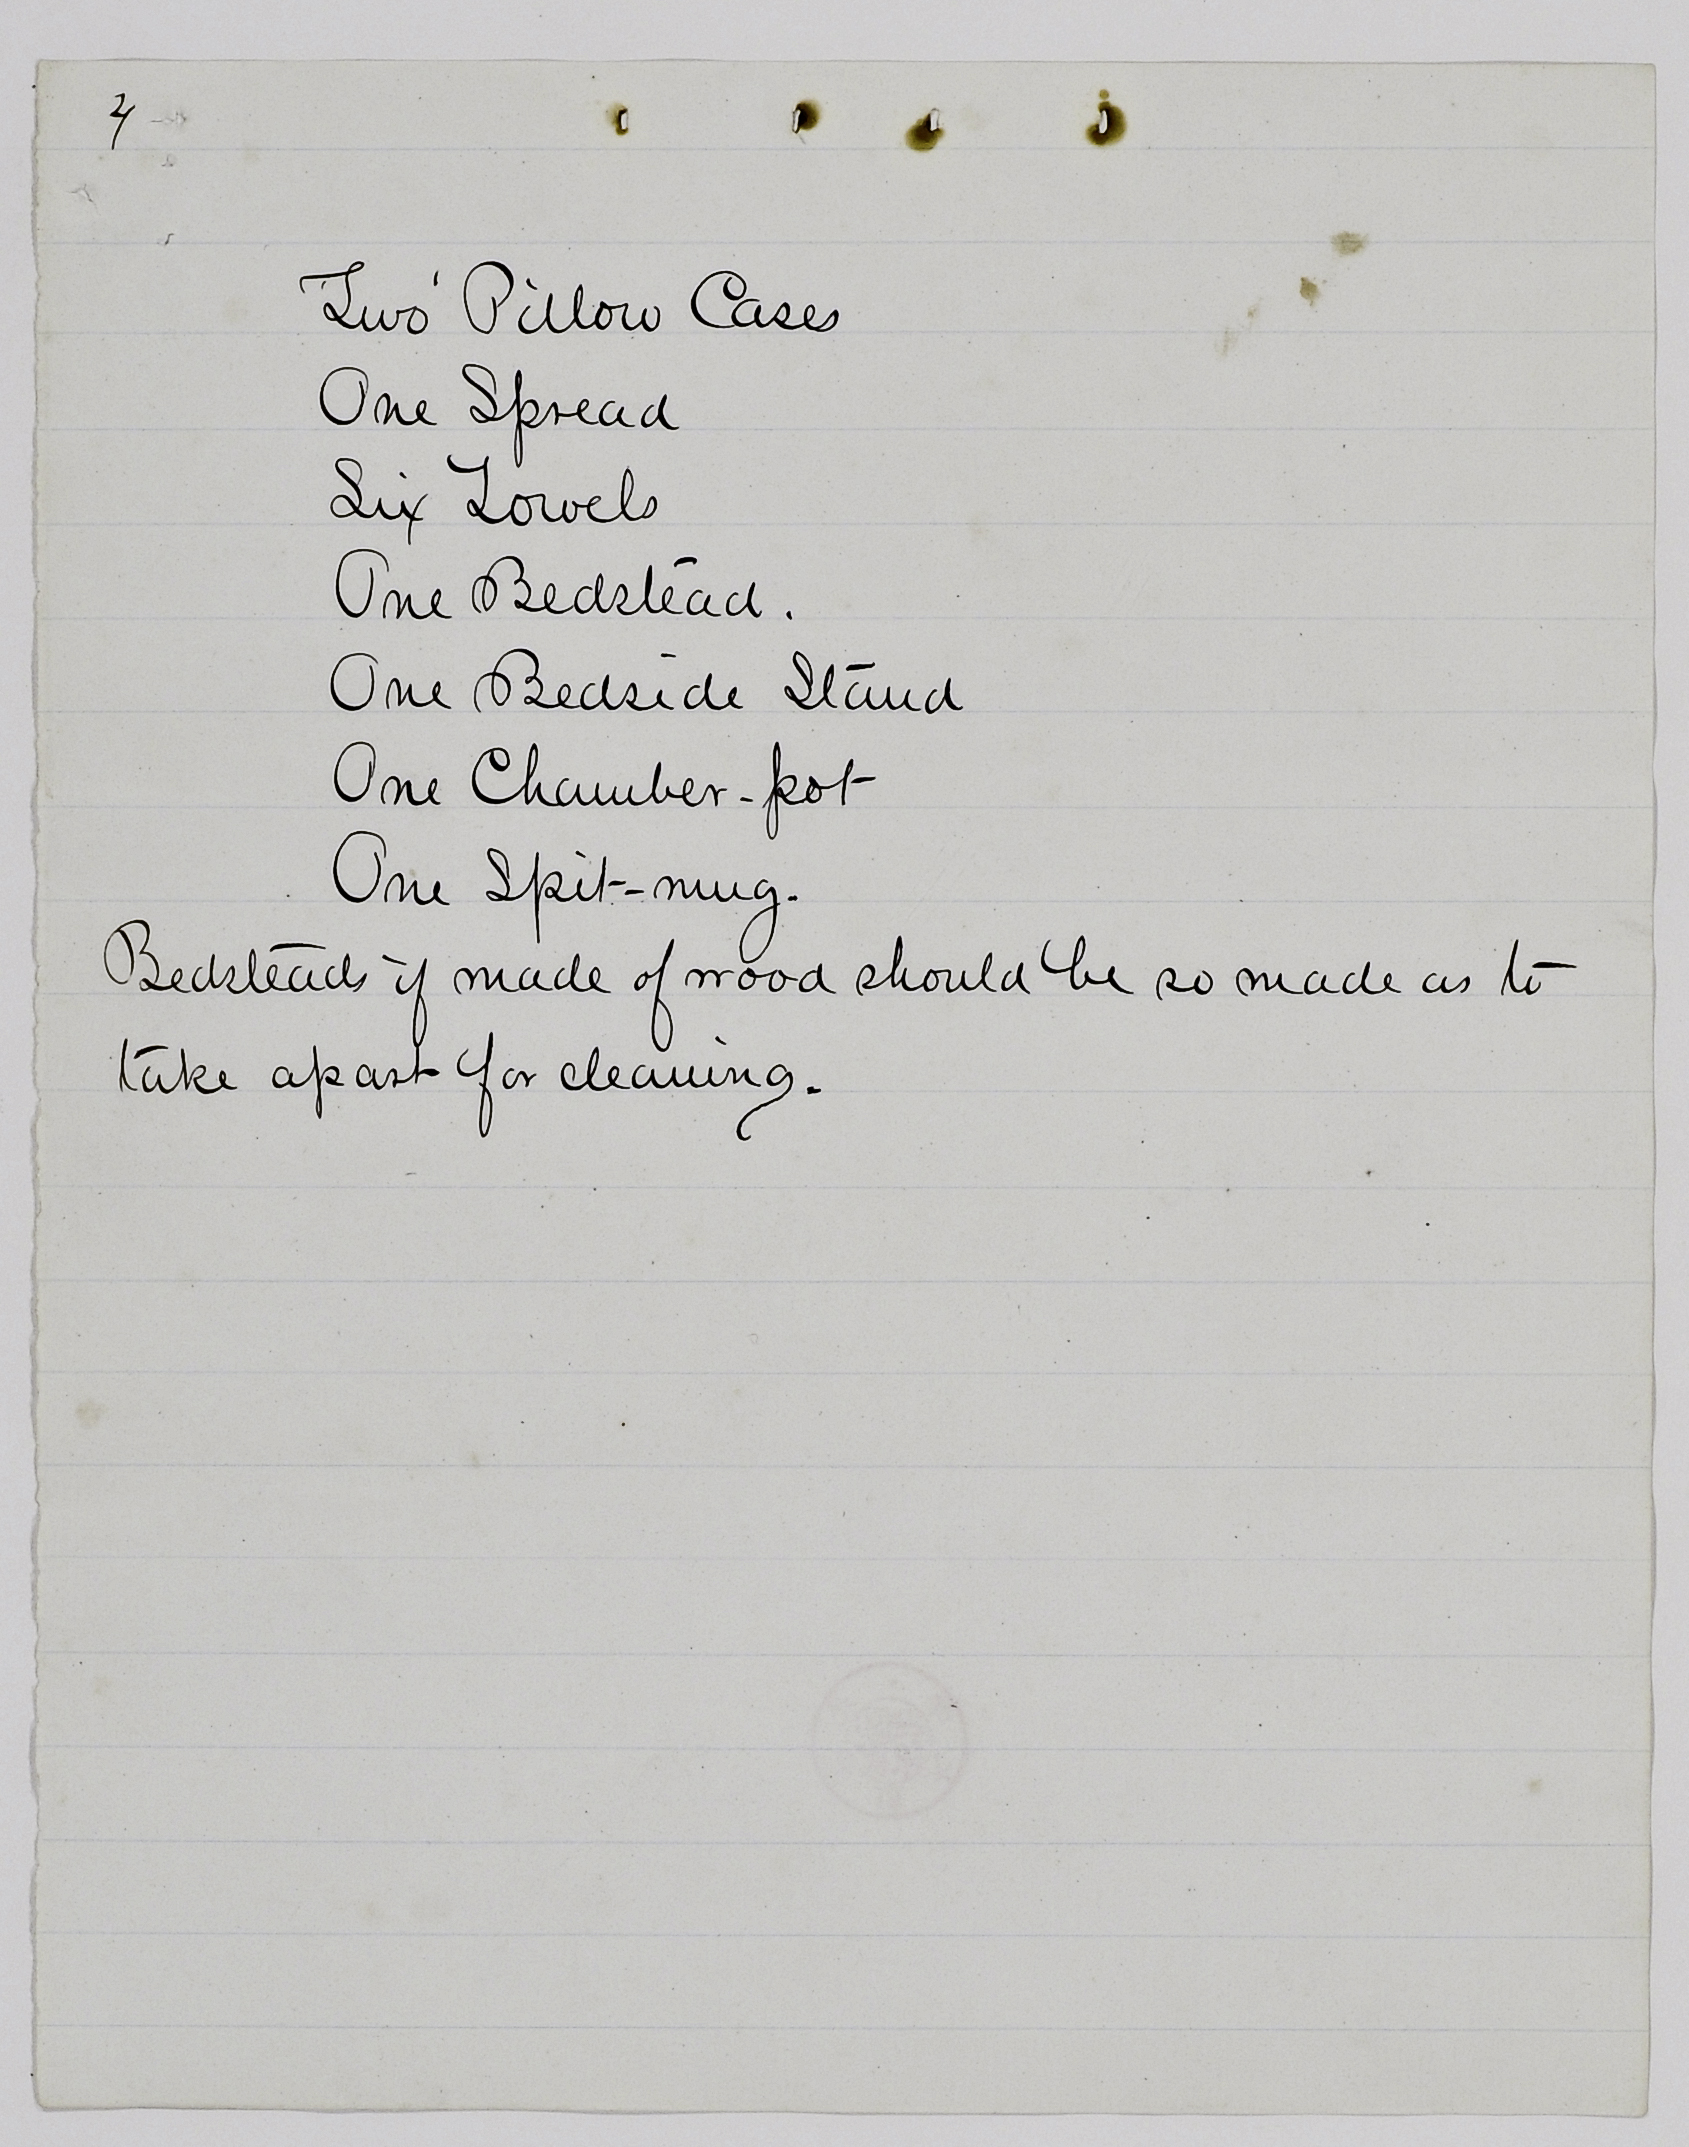 4
Two Pillow Cases
One Spread
Six Towels
One Bedstead.
One Bedside Stand
One Chamber-pot
One Spit-mug.
Bedsteads if made of wood should be so made as to
take apart for cleaning.